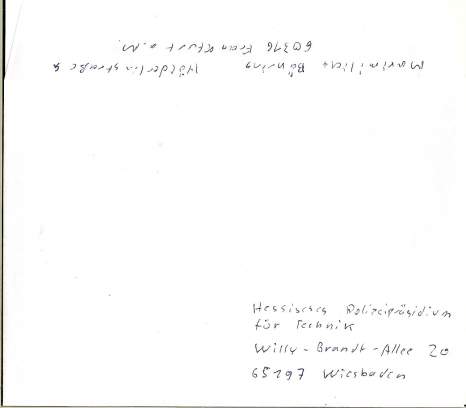 Maximilian Bähring Hölderlinstraße 4
60316 Frankfurt a.M.
Hessisches Polizeipräsidium
für Technik
Willy-Brandt-Allee 20
65197 Wiesbaden